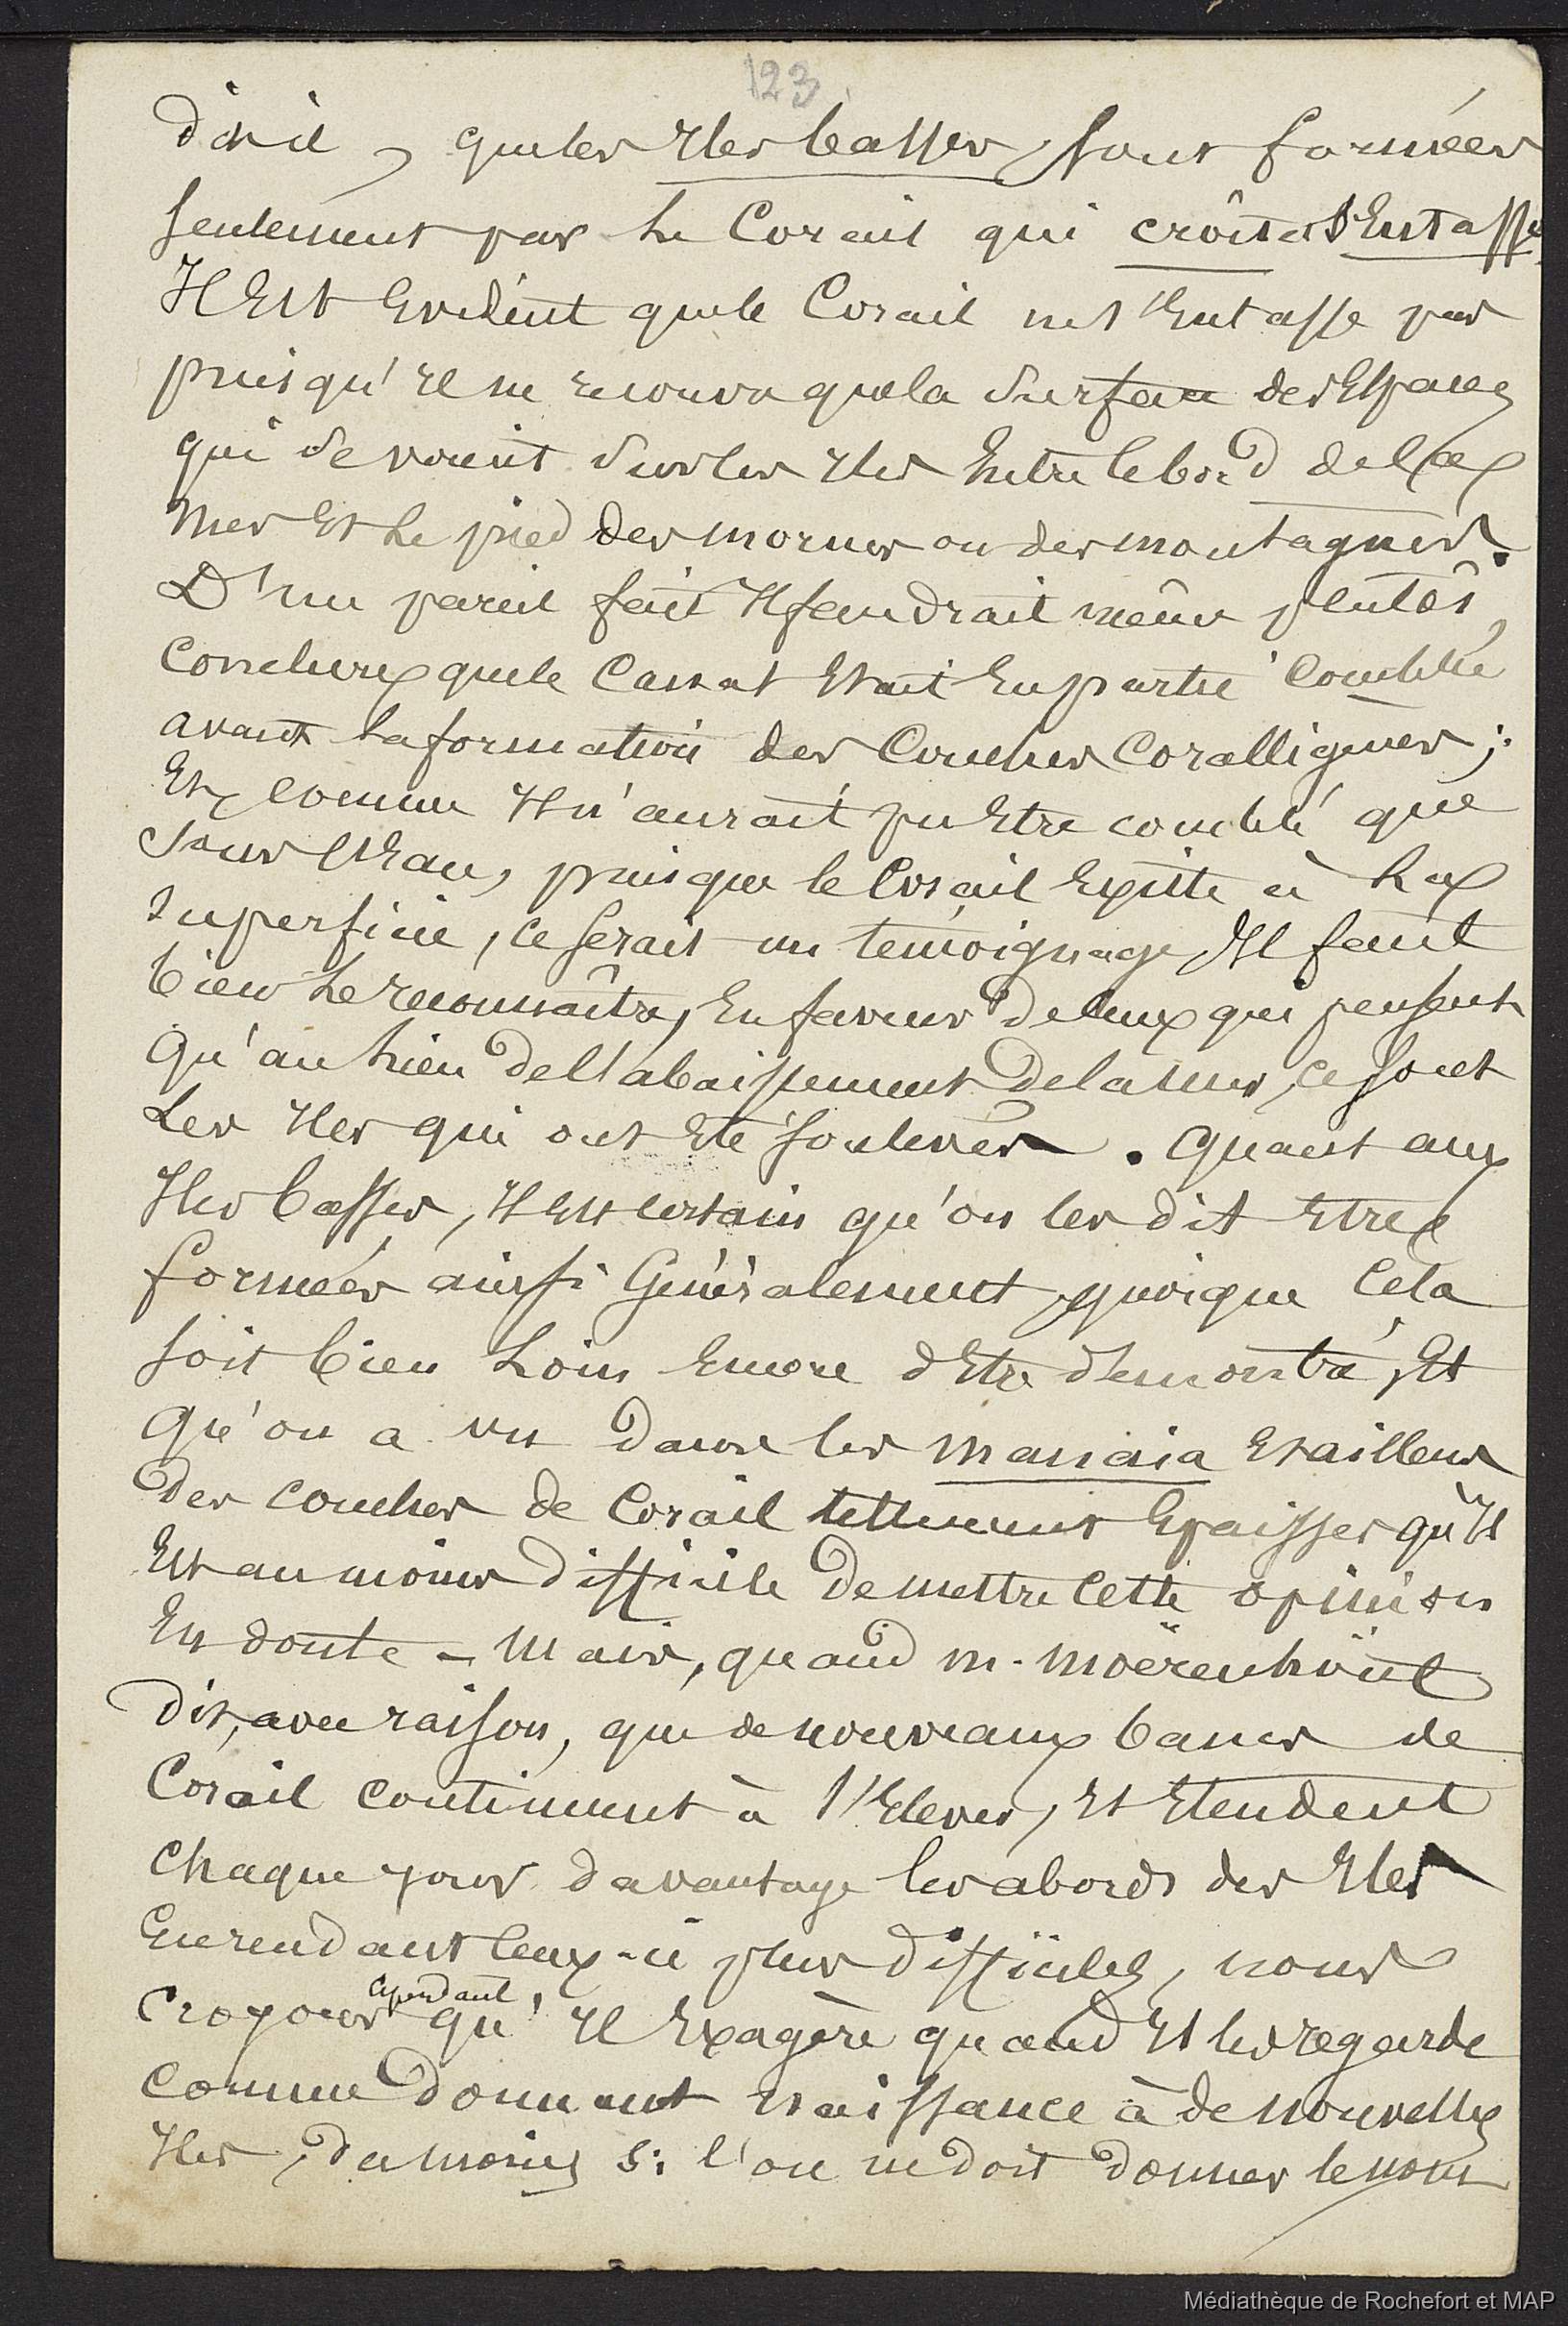 123
dit-il, que les Iles basses, sont formées
seulement par le Corail qui croît et s'Entasse.
Il Est Evident que le Corail ne s'Entasse pas
puisqu'il ne recouvre que la surface des Espaces
qui se voient sur les Iles Entre le bord de la
mer Et le pied des mornes ou des montagnes.
D'un pareil fait Il faudrait même plutôt,
Conclure que le Canal Etait En partie comblé
avant la formation des Couches Coralligènes;
Et comme Il n'aurait pu Etre comblé que
sous l'Eau, puisque le Corail Existe à la
superficie, ce serait un témoignage, Il faut
bien le reconnaître, En faveur de ceux qui pensent
qu'au lieu de l'abaissement de la mer, ce sont
Les Iles qui ont Eté soulevées. Quant aux
Iles basses, Il Est certain qu'on les dit Etre
formées ainsi Généralement, quoique Cela
soit bien Loin Encore d'Etre démontré, Et
qu'on a vu dans les manaia Et ailleurs
des couches de Corail tellement Epaisses qu'Il
Est au moins difficile de mettre Cette opinion
En doute - Mais, quand M. Moërenhoüt
dit, avec raison, que de nouveaux bancs de
Corail continuent à s'Elever, Et Etendent
chaque jour davantage les abords des Iles
En rendant ceux-ci plus difficiles, nous
cependant
croyons qu'il Exagère quand Il les regarde
comme donnant naissance à de nouvelles
Iles, du moins si l'on ne doit donner le nom
Médiathèque de Rochefort et MAP